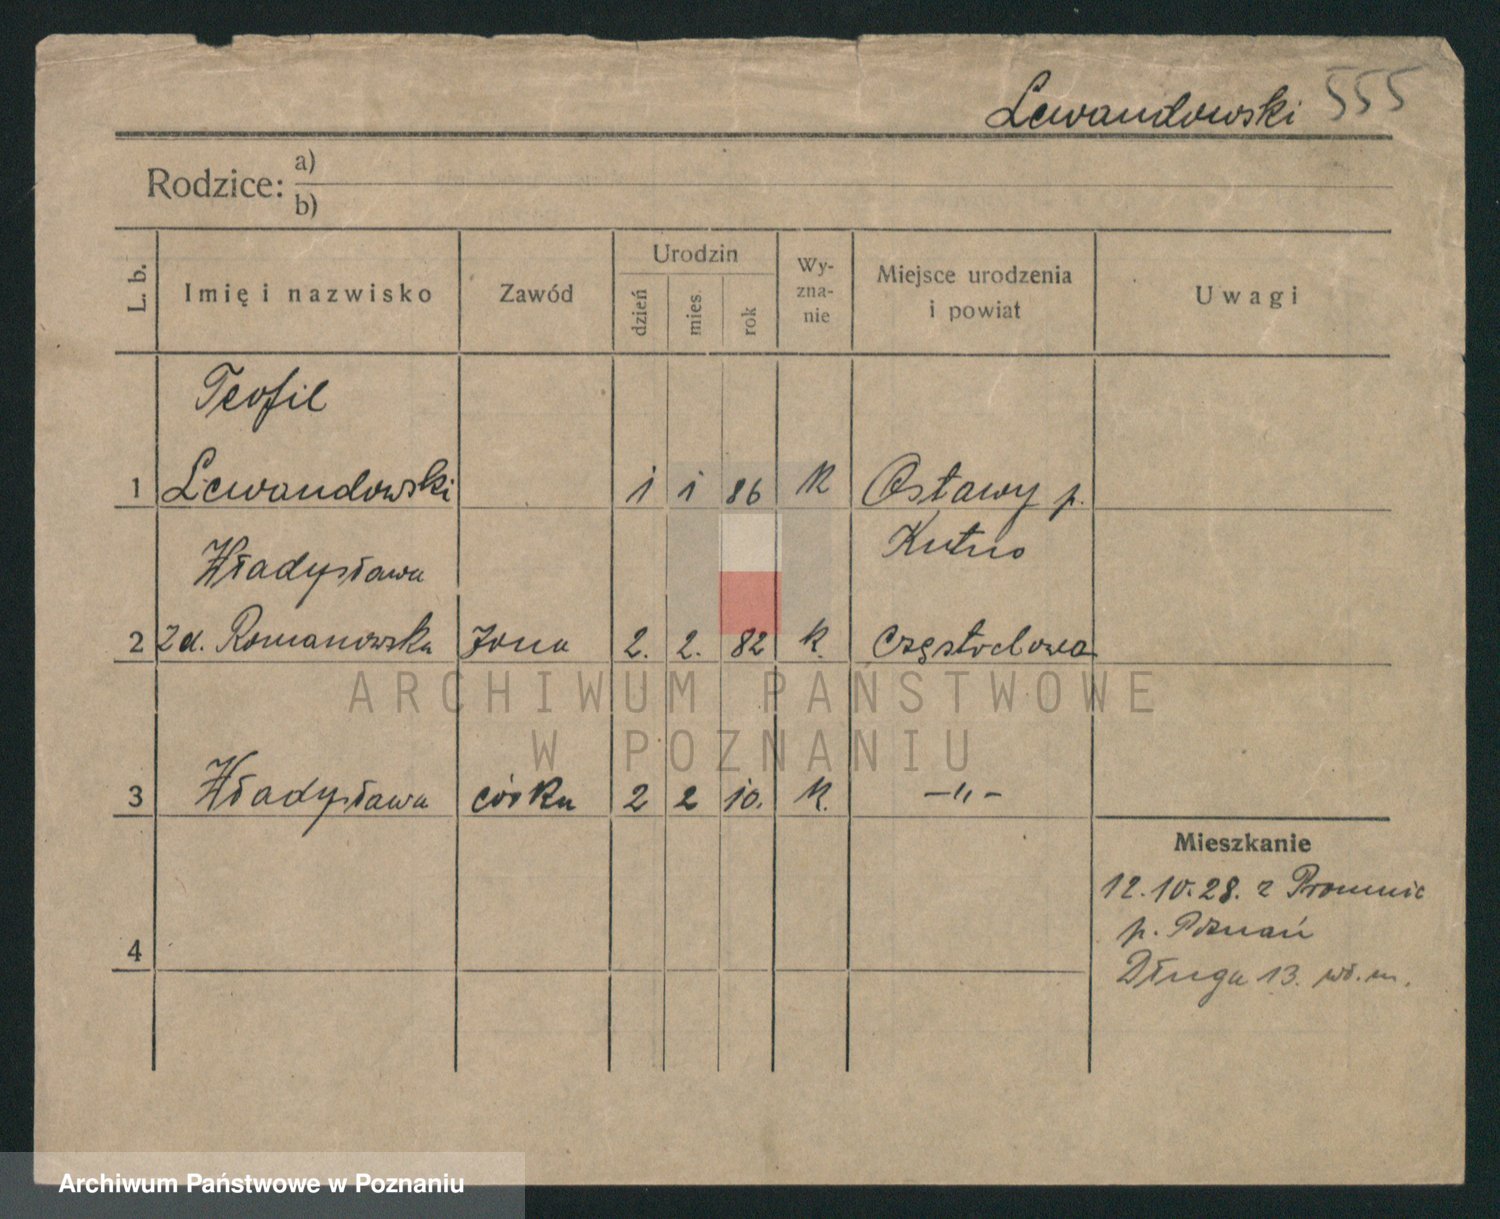 Lewandowski 555
Rodzice: a)
b)
L. b.
Imię i nazwisko
Zawód
Urodzin
dzień
mies.
rok
Wy-
zna-
nie
Miejsce urodzenia
i powiat
Uwagi
Teofil
1 Lewandowski 1 1 86 R Ostawy p.
Kutno
Władysława
2 zd. Romanowska żona 2. 2. 82 k. Częstochowa
3 Władysława córka 2 2 10. k. –„–
4
Mieszkanie
12.10.28. z Promnic
p. Poznań
Długa 13. wł. m.
ARCHIWUM PAŃSTWOWE
W POZNANIU
Archiwum Państwowe w Poznaniu